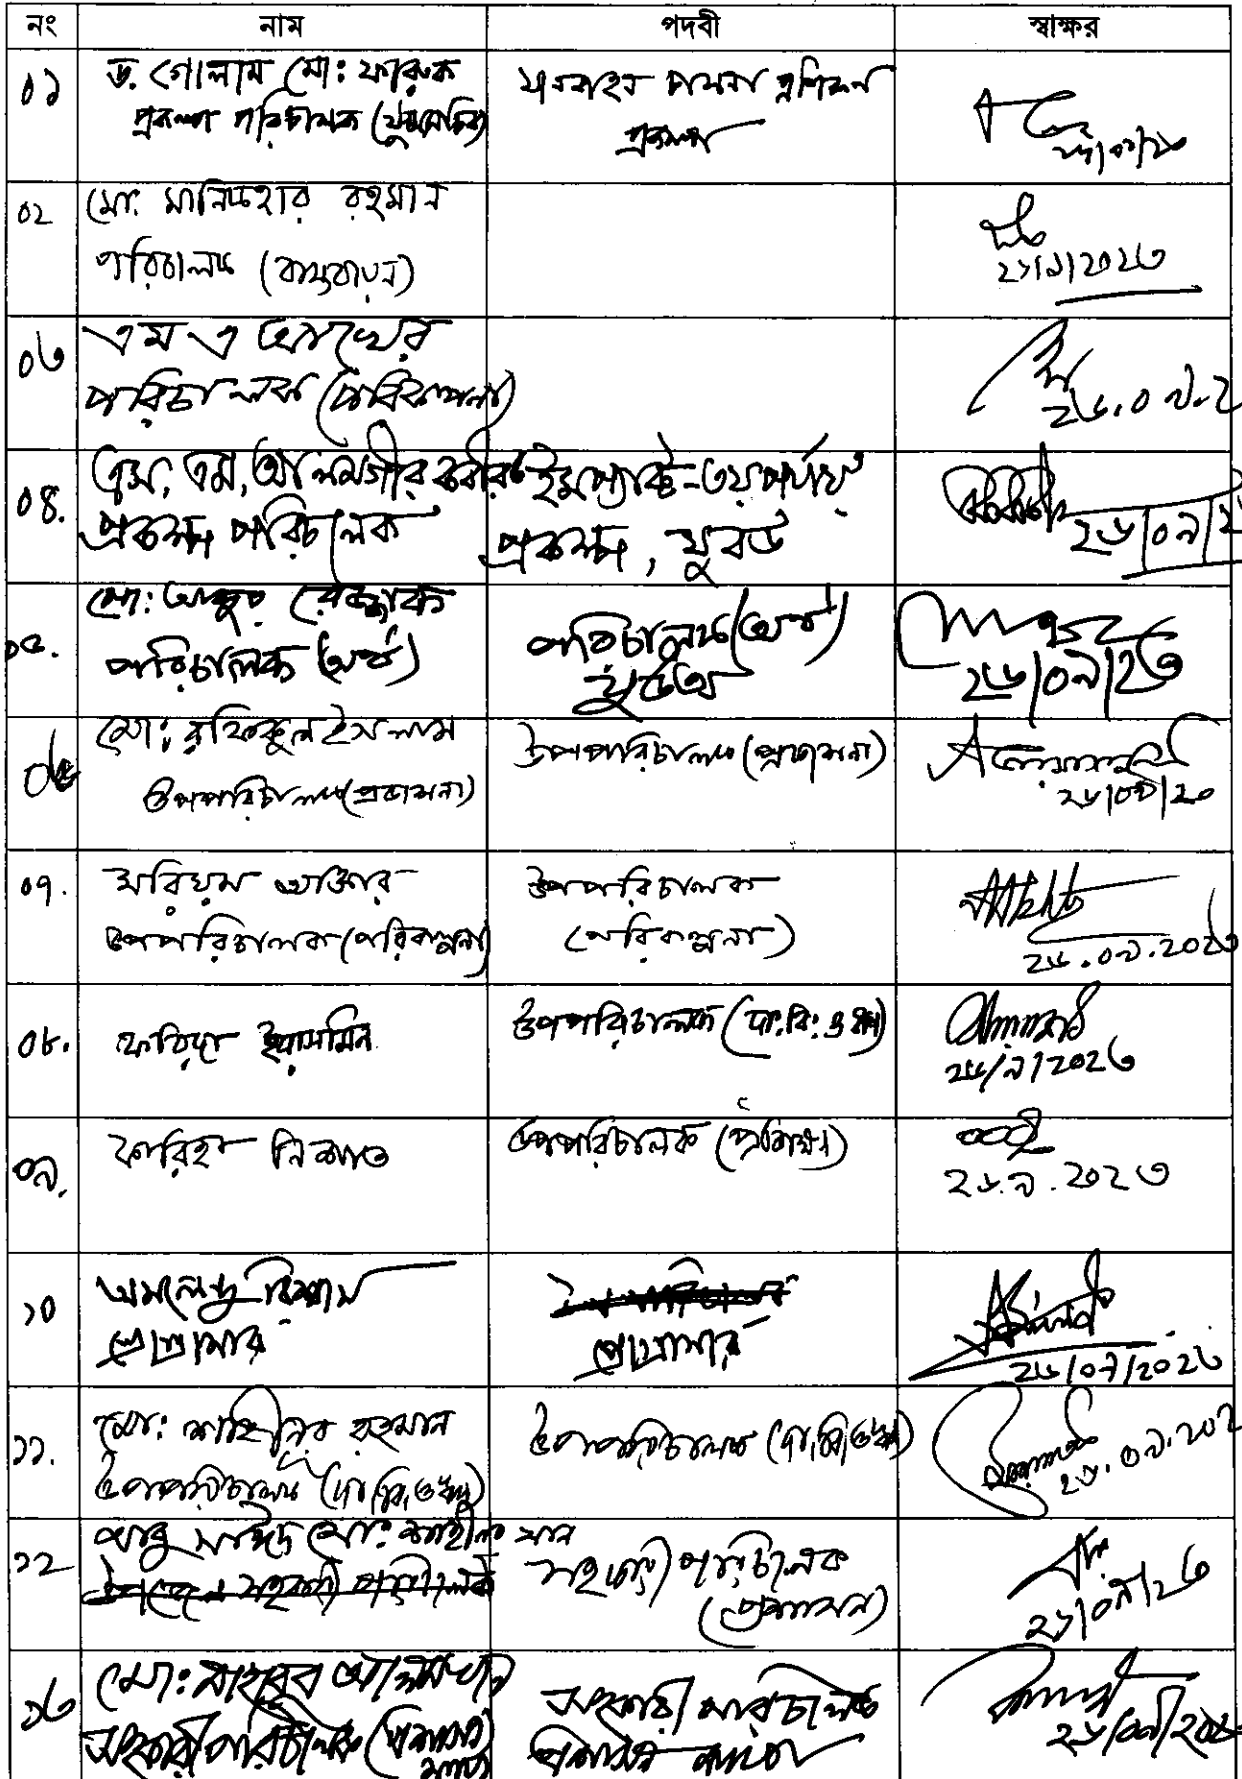 নং নাম পদবী স্বাক্ষর
০১ ড. গোলাম মো: ফারুক
প্রকল্প পরিচালক যানবাহন চালনা প্রশিক্ষণ
প্রকল্প
০২ মো: রহমান
পরিচালক (বাস্তবায়ন)
২৬/৯/২০২৩
০৩ এম এ আখের
পরিচালক (পরিকল্পনা)
০৪. এস, এম, আলমগীর কবীর ইমপ্যাক্ট-৩য় পর্যায়
প্রকল্প পরিচালক প্রকল্প, যুবউ
২৬/০৯/২
০৫. মো: আব্দুর রেজ্জাক
পরিচালক (অর্থ) পরিচালক (অর্থ)
যুউঅ
২৬/০৯/২৩
০৬ মো: রফিকুল ইসলাম উপপরিচালক (প্রশাসন)
উপপরিচালক (প্রশাসন)
২৬/০৯/২৩
০৭. মরিয়ম আক্তার উপপরিচালক
উপপরিচালক (পরিকল্পনা) (পরিকল্পনা)
২৬.০৯.২০২৩
০৮. ফরিদা ইয়াসমিন উপপরিচালক (দা:বি: ও ঋণ)
২৬/৯/২০২৩
০৯. ফারিহা নিশাত উপপরিচালক (প্রশিক্ষণ)
২৬.৯.২০২৩
১০ অমলেন্দু বিশ্বাস
প্রোগ্রামার প্রোগ্রামার
২৬/০৯/২০২৩
১১. মো: শাহিনুর রহমান উপপরিচালক (দা,বি,ও ঋণ)
উপপরিচালক (দা,বি,ও ঋণ)
২৬.০৯.২০২
১২ আবু সাঈদ মো: খান সহকারী পরিচালক
(প্রশাসন)
২৬/০৯/২৩
১৩ মো: মাহবুব আলম খান সহকারী পরিচালক
সহকারী পরিচালক (প্রশাসন) প্রশাসন শাখা
২৬/০৯/২০২৩